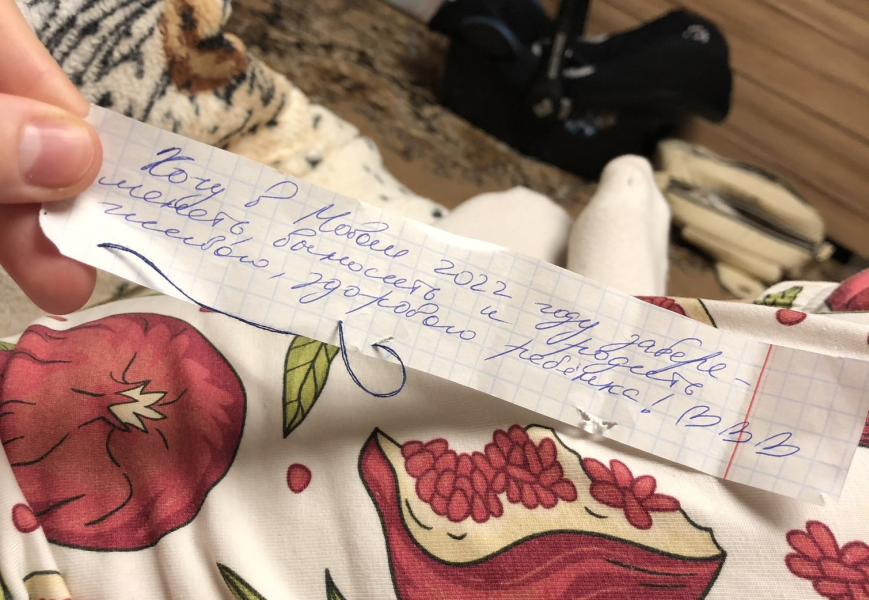 Хочу в Новом 2022 году забере-
менеть, выносить и родить
живого, здорового ребёнка!